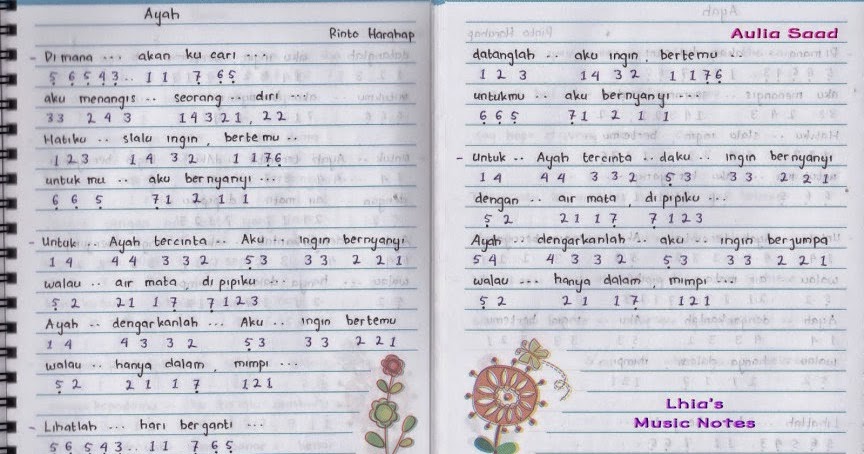 Ayah
Rinto Harahap
- Di mana ... akan ku cari ...
5 6 5 4 3 .. 1 1 7 6 5
aku menangis .. seorang .. diri ...
33 2 4 3 1 4 3 2 1 , 2 2
Hatiku .. slalu ingin , bertemu ..
1 2 3 1 4 3 2 1 1 7 6
untuk mu .. aku bernyanyi ...
6 6 5 7 1 2 1 1
- Untuk .. Ayah tercinta .. Aku .. ingin bernyanyi
1 4 4 4 3 3 2 5 3 3 3 2 2 1
walau .. air mata di pipiku ...
5 2 2 1 1 7 7 1 2 3
Ayah .. dengarkanlah ... Aku .. ingin bertemu
1 4 4 3 3 2 5 3 3 3 2 2 1
walau .. hanya dalam , mimpi ...
5 2 2 1 1 7 1 2 1
- Lihatlah ... hari berganti ...
5 6 5 4 3 .. 1 1 7 6 5
Aulia Saad
datanglah .. aku ingin , bertemu ...
1 2 3 1 4 3 2 1 1 7 6
untukmu .. aku bernyanyi ...
6 6 5 7 1 2 1 1
- Untuk .. Ayah tercinta .. daku .. ingin bernyanyi
1 4 4 4 3 3 2 5 3 3 3 2 2 1
dengan .. air mata di pipiku ...
5 2 2 1 1 7 7 1 2 3
Ayah .. dengarkanlah .. aku .. ingin berjumpa
5 4 4 3 3 2 5 3 3 3 2 2 1
walau ... hanya dalam , mimpi ...
5 2 2 1 1 7 1 2 1
Lhia's
Music Notes